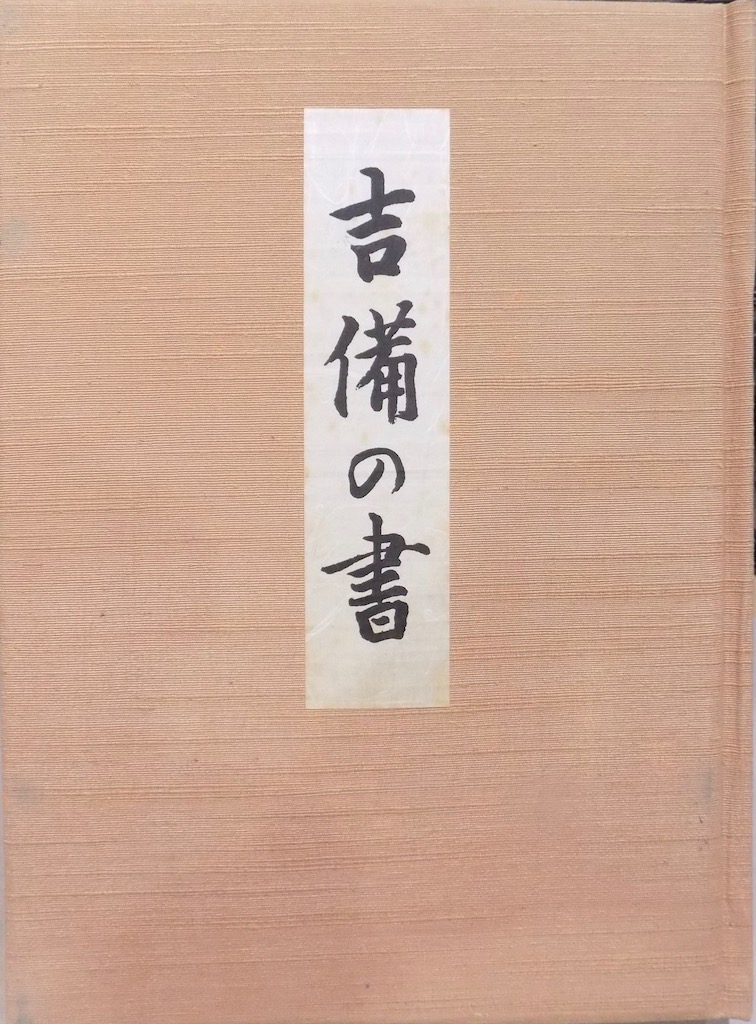 吉備の書